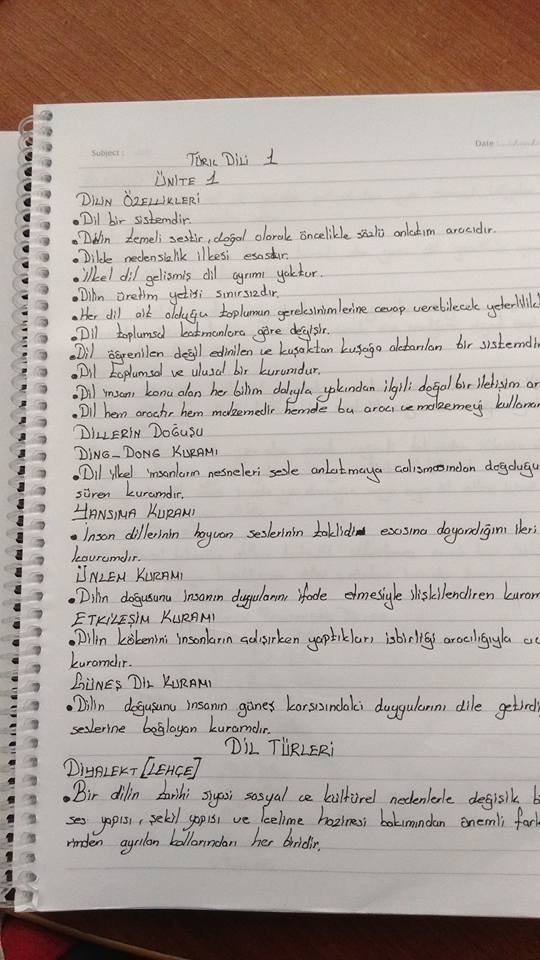 Subject :
Date :
TÜRK DİLİ 1
ÜNİTE 1
DİLİN ÖZELLİKLERİ
• Dil bir sistemdir.
• Dilin temeli sestir, doğal olarak öncelikle sözlü anlatım aracıdır.
• Dilde nedensizlik ilkesi esastır.
• İlkel dil gelişmiş dil ayrımı yoktur.
• Dilin üretim yetisi sınırsızdır.
• Her dil ait olduğu toplumun gereksinimlerine cevap verebilecek yeterlilikt
• Dil toplumsal katmanlara göre değişir.
• Dil öğrenilen değil edinilen ve kuşaktan kuşağa aktarılan bir sistemdir
• Dil toplumsal ve ulusal bir kurumdur.
• Dil insanı konu alan her bilim dalıyla yakından ilgili doğal bir iletişim ar
• Dil hem araçtır hem malzemedir hemde bu aracı ve malzemeyi kullanan
DİLLERİN DOĞUŞU
DİNG-DONG KURAMI
• Dil ilkel insanların nesneleri sesle anlatmaya çalışmasından doğduğu
süren kuramdır.
YANSIMA KURAMI
• İnsan dillerinin hayvan seslerinin taklidi esasına dayandığını ileri
kavramdır.
ÜNLEM KURAMI
• Dilin doğusunu insanın duygularını ifade etmesiyle ilişkilendiren kuram
ETKİLEŞİM KURAMI
• Dilin kökenini insanların çalışırken yaptıkları işbirliği aracılığıyla
kuramdır.
GÜNEŞ DİL KURAMI
• Dilin doğuşunu insanın güneş karşısındaki duygularını dile getirdi
seslerine bağlayan kuramdır.
DİL TÜRLERİ
DİYALEKT [LEHÇE]
• Bir dilin tarihi siyasi sosyal ve kültürel nedenlerle değişik b
ses yapısı, şekil yapısı ve kelime hazinesi bakımından önemli fark
rinden ayrılan kollarından her biridir.